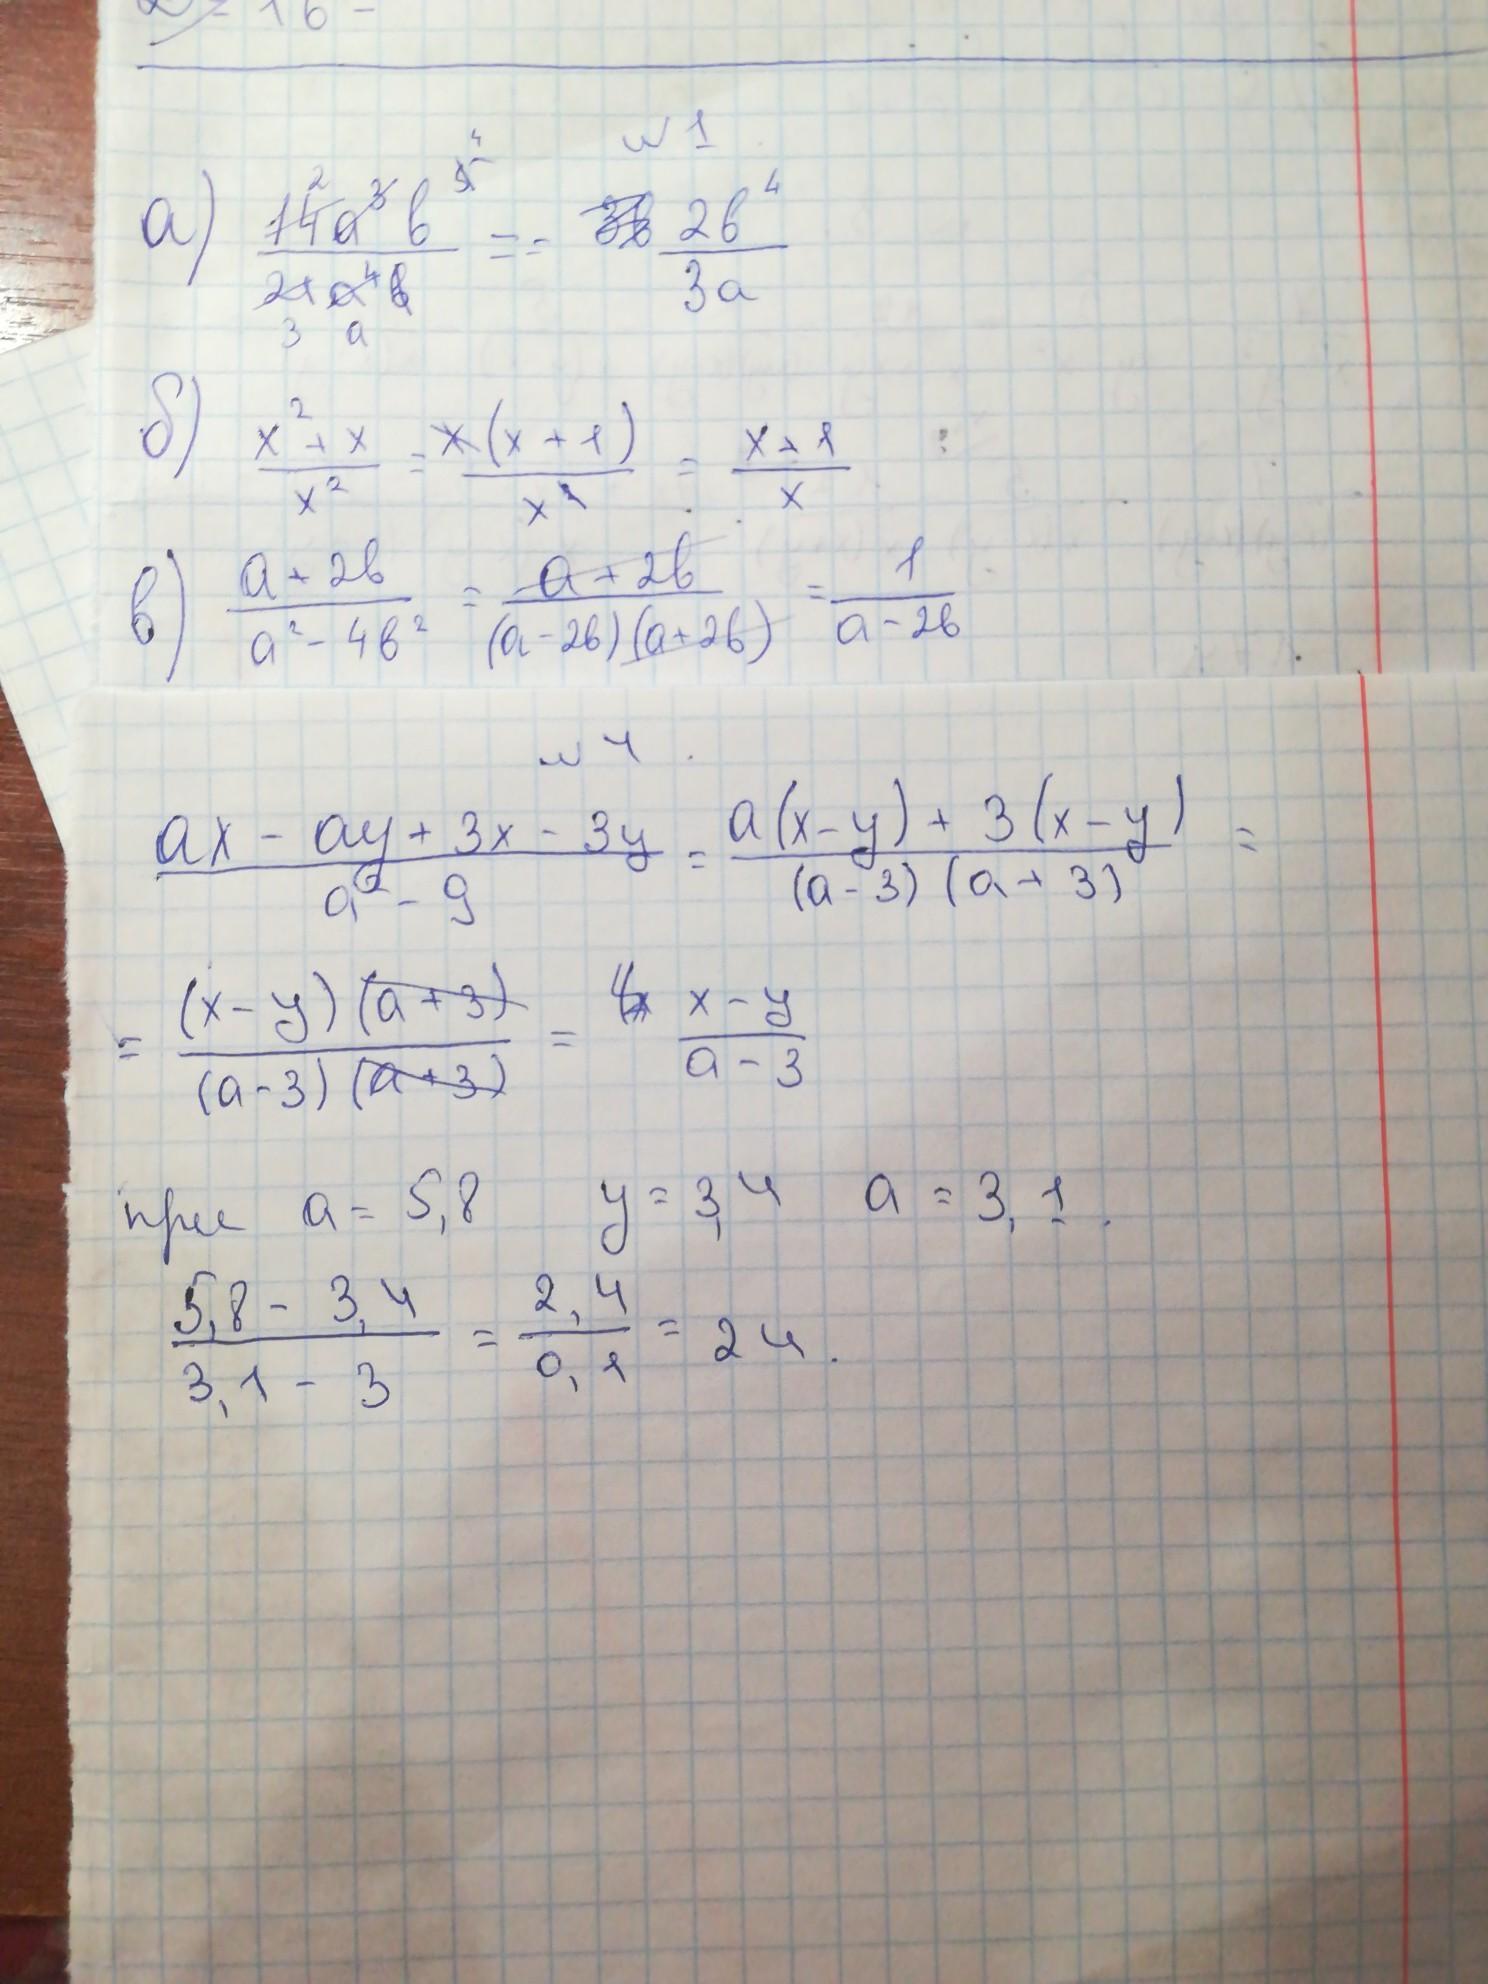 = 16 -
№ 1
а) 14a³b⁵/21a⁴b = 2b⁴/3a
б) x² + x/x² = x(x + 1)/x² = x + 1/x
в) a + 2b/a² - 4b² = a + 2b/(a - 2b)(a + 2b) = 1/a - 2b
№ 4
ax - ay + 3x - 3y/a² - 9 = a(x - y) + 3(x - y)/(a - 3)(a + 3) =
= (x - y)(a + 3)/(a - 3)(a + 3) = x - y/a - 3
при a = 5,8 y = 3,4 a = 3,1.
5,8 - 3,4/3,1 - 3 = 2,4/0,1 = 24.